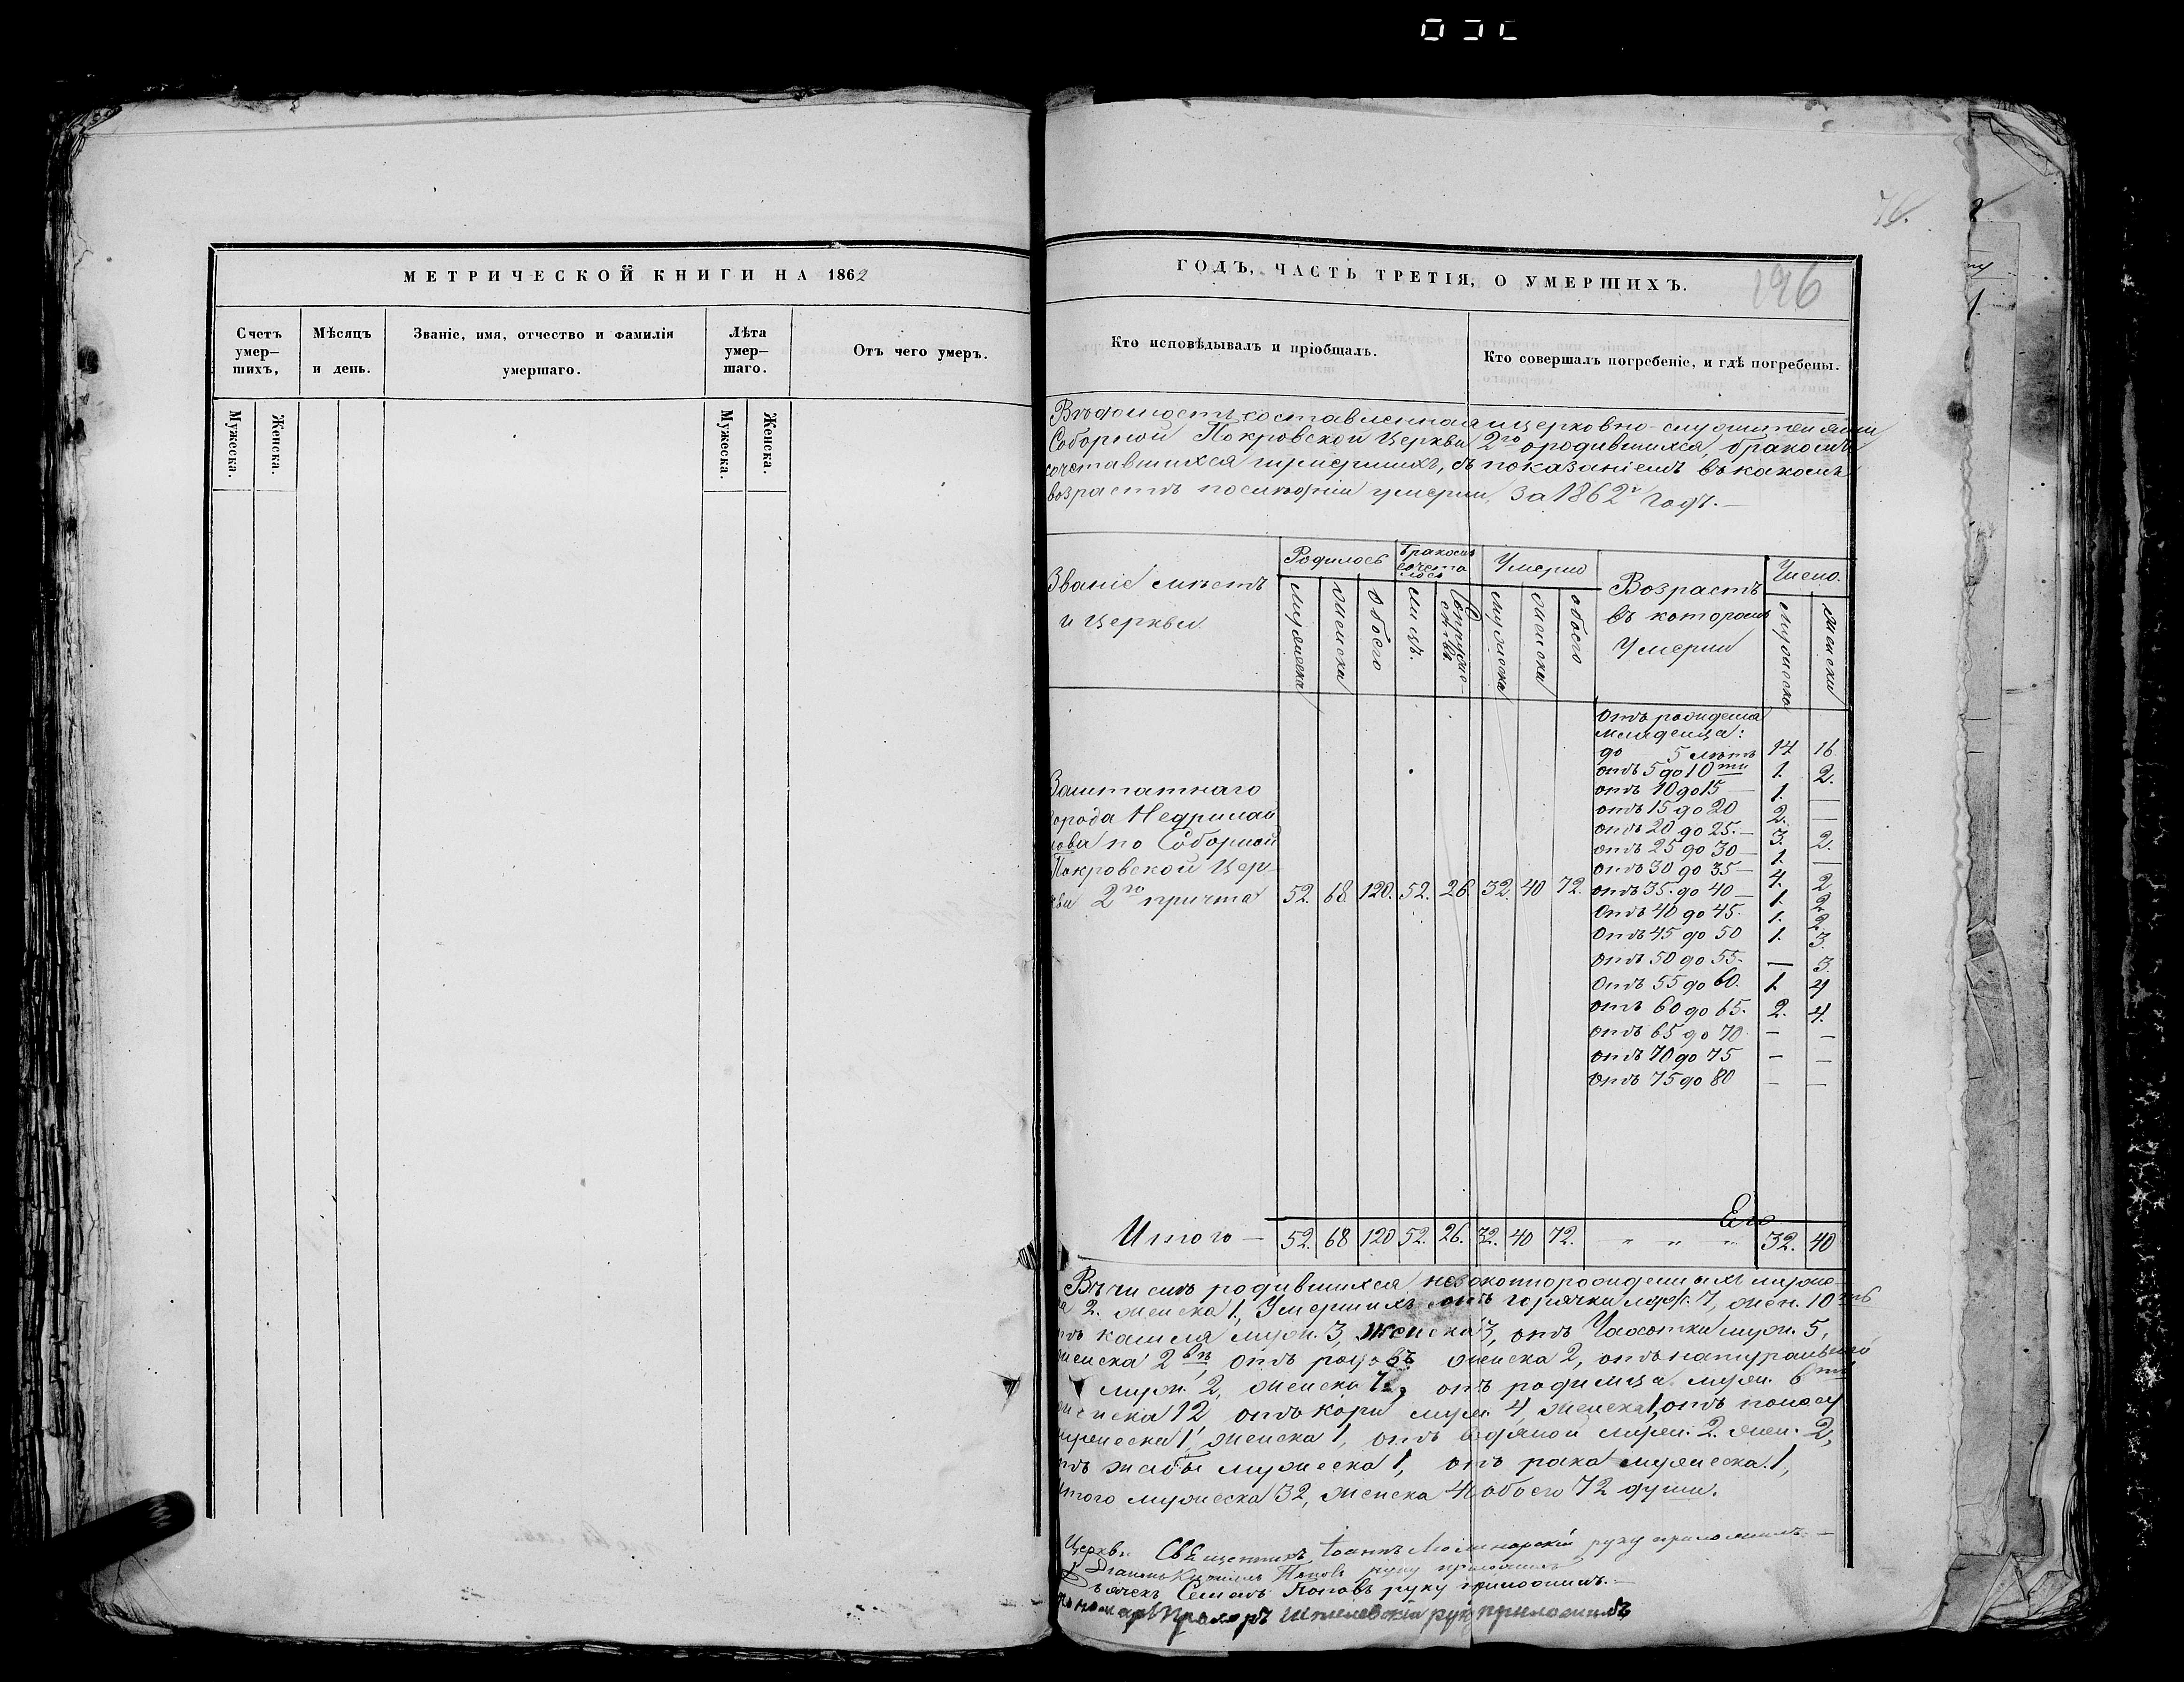 МЕТРИЧЕСКОЙ КНИГИ НА 1862
Счетъ умер– шихъ,
Мѣсяцъ и день.
Званіе, имя, отчество и фамилія умершаго.
Лѣта умер– шаго.
Отъ чего умеръ.
Мужеска. Женска. Мужеска. Женска.
ГОДЪ, ЧАСТЬ ТРЕТІЯ, О УМЕРШИХЪ.
196
Кто исповѣдывалъ и пріобщалъ.
Кто совершалъ погребеніе, и гдѣ погребены.
Вѣдомость составленная церковно-служителями
Соборной Покровской Церкви 2го о родившихся, бракомъ
сочетавшихся и умершихъ, съ показаніемъ въ какомъ
возрастѣ послѣдніи умерли, за 1862й годъ.—
Званіе мѣстъ и церкви
Родилось
Бракомъ сочеталось
Умерло
Возрастъ въ которомъ Умерли
Число.
мужеска женска обоего лицъ. Супружествъ мужеска женска обоего мужеска женска
Заштатнаго
города Недригай
лова по Соборной
Покровской Цер-
кви 2го причта 52. 68. 120. 52. 26. 32. 40 72.
Отъ рожденія
младенца:
до 5 лѣтъ 14 16
отъ 5 до 10ти 1. 2.
отъ 10 до 15 — 1. —
отъ 15 до 20 2. —
отъ 20 до 25.— 3. 2.
отъ 25 до 30 — 1. —
отъ 30 до 35 — 4. 2
отъ 35. до 40 — 1. 2.
Отъ 40 до 45. 1. 2
Отъ 45 до 50 1. 3.
Отъ 50 до 55. — 3.
Отъ 55 до 60. 1. 4
отъ 60 до 65. 2. 4.
отъ 65 до 70 — —
отъ 70 до 75 — —
отъ 75 до 80 — —
Итого — 52. 68 120 52. 26. 32. 40 72. " " " 32. 40
Въ числѣ родившихся незаконнорожденныхъ муже-
ка 2. женска 1, Умершихъ отъ горячки муж. 7, жен. 10ть
отъ кашля муж. 3, женска 3, отъ Чахотки муж. 5,
женска 2вѣ, отъ родовъ женска 2, отъ натуральной
муж. 2, женска 7, отъ родимца муж. 6ть
женска 12 отъ кори муж. 4, женска 1, отъ поносу
мужеска 1, женска 1, отъ водяной муж. 2. жен. 2,
отъ жабы мужеска 1, отъ рака мужеска 1,
итого мужеска 32, женска 40 обоего 72 души.
Церкви Священникъ Іоаннъ руку приложилъ.—
Попов руку приложилъ
Дьячекъ Семенъ Поповъ руку приложилъ.—
Пономарь Прохоръ руку приложилъ